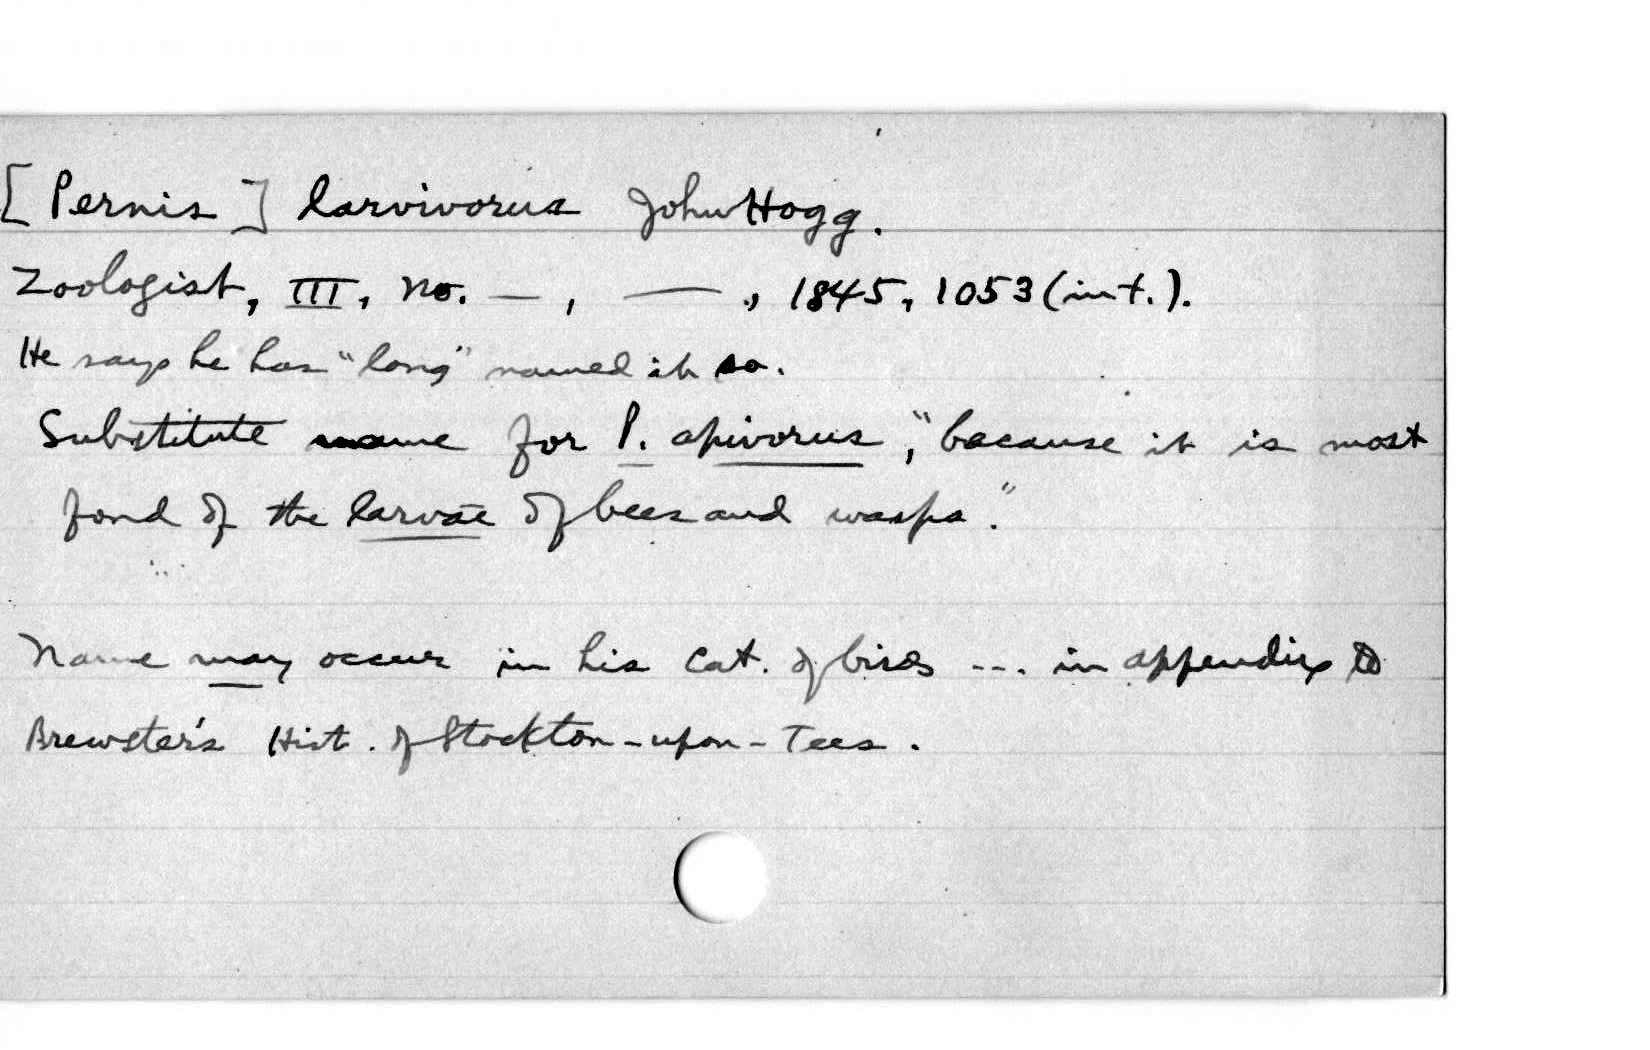 [Pernis] larvivorus John Hogg.
Zoologist, III, No. —, — ., 1845, 1053 (int.).
He says he has "long" named it so.
Substitute name for P. apivorus, "because it is most
fond of the larvae of bees and wasps."
Name may occur in his Cat. of birds --- in appendix to
Brewster's Hist. of Stockton-upon-Tees.